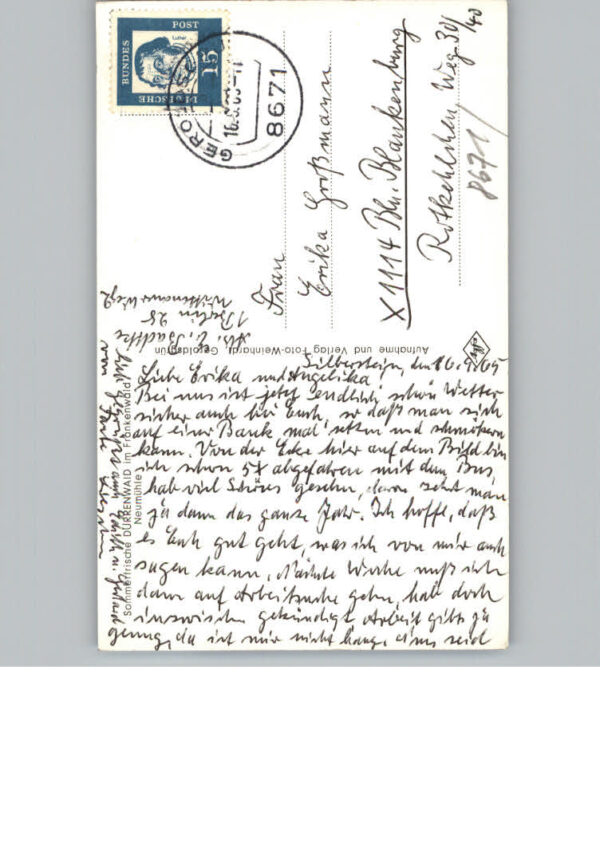 DEUTSCHE
BUNDES
POST
15
Luther
GEROLDSGRÜN
16.9.65-11
8671
Frau
Erika Großmann
X 1114 Bln. Blankenburg
Rotkehlchen Weg 39/40
8671/
Abs. E. Badtke
1 Berlin 28
Aufnahme und Verlag Foto-Weinhardt, Geroldsgrün
Silberstein, den 16.9.65
Liebe Erika und Angelika!
Bei uns ist jetzt endlich schön Wetter
sicher auch bei Euch, so daß man sich
auf einer Bank mal setzen und schmökern
kann. Von der Ecke hier auf dem Bild bin
ich schon 5x abgefahren mit dem Bus,
hab viel Schönes gesehn, davon zehrt man
ja dann das ganze Jahr. Ich hoffe, daß
es Euch gut geht, was ich von mir auch
sagen kann. Nächste Woche muß ich
dann auf Arbeitsuche gehn, hab doch
inzwischen gekündigt. Arbeit gibts ja
genug, da ist mir nicht bange. Nun seid
von
Sommerfrische DÜRRENWAID im Frankenwald
Neumühle